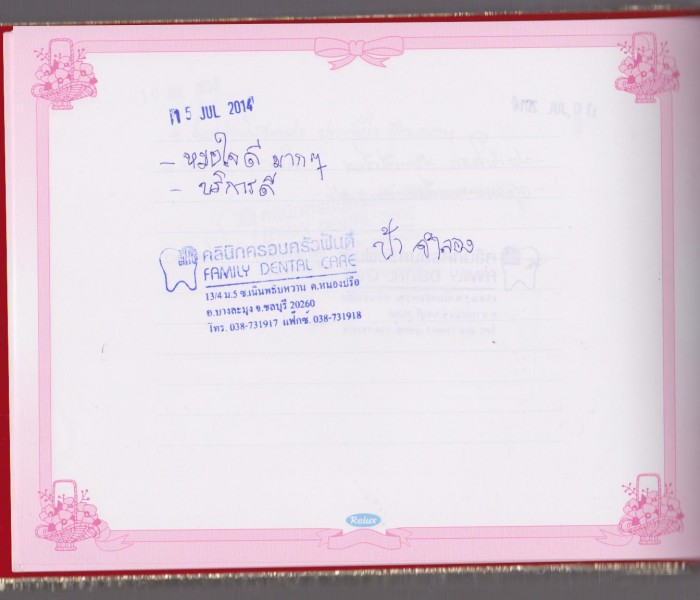 15 JUL 2014
- หมอใจดี มากๆ
- บริการดี
ป้า จำลอง
คลินิกครอบครัวฟันดี
FAMILY DENTAL CARE
13/4 ม.5 ซ.เนินพลับหวาน ต.หนองปรือ
อ.บางละมุง จ.ชลบุรี 20260
โทร. 038-731917 แฟ็กซ์. 038-731918
Relux